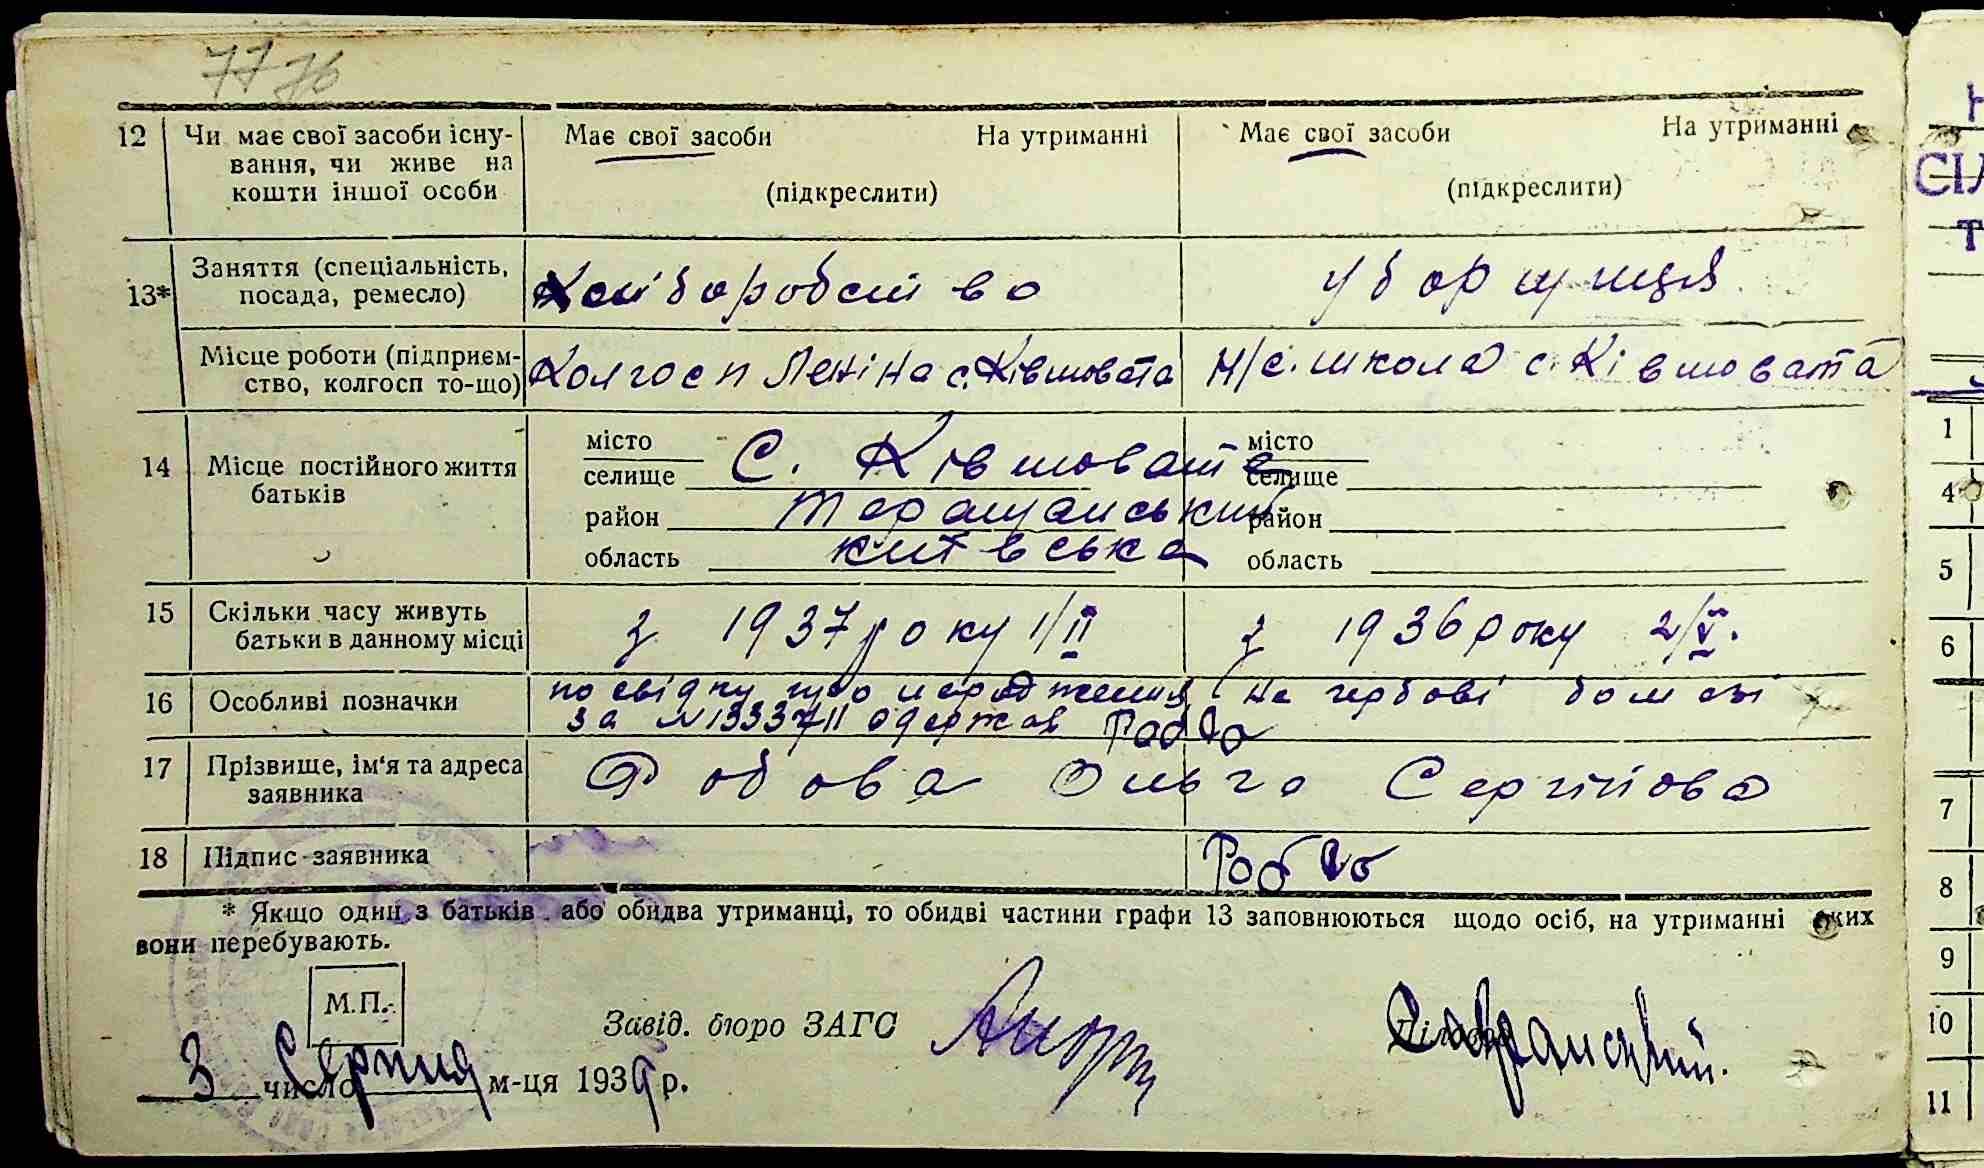 77 76
12 Чи має свої засоби існу- Має свої засоби На утриманні Має свої засоби На утриманні
вання, чи живе на
кошти іншої особи (підкреслити) (підкреслити)
13* Заняття (спеціальність, посада, ремесло) хліборобство уборщиця
Місце роботи (підприєм- Колгосп Леніна с. Ківшовата Н/с. школа с. Ківшовата
ство, колгосп то-що)
14 Місце постійного життя батьків
місто селище С. Ківшовата місто селище
район Таращанський район
область київська область
15 Скільки часу живуть з 1937 року 1/II з 1936 року 2/V.
батьки в данному місці
16 Особливі позначки посвідку про народження на гербові бомазі
за № 1333711 одержав
17 Прізвище, ім'я та адреса Робова Ольга Сергіївна
заявника
18 Підпис заявника
* Якщо один з батьків або обидва утриманці, то обидві частини графи 13 заповнюються щодо осіб, на утриманні яких
вони перебувають.
М.П.
Завід. бюро ЗАГС
3 число Серпня м-ця 1939 р.
СІЛ
Т
1
4
5
6
7
8
9
10
11